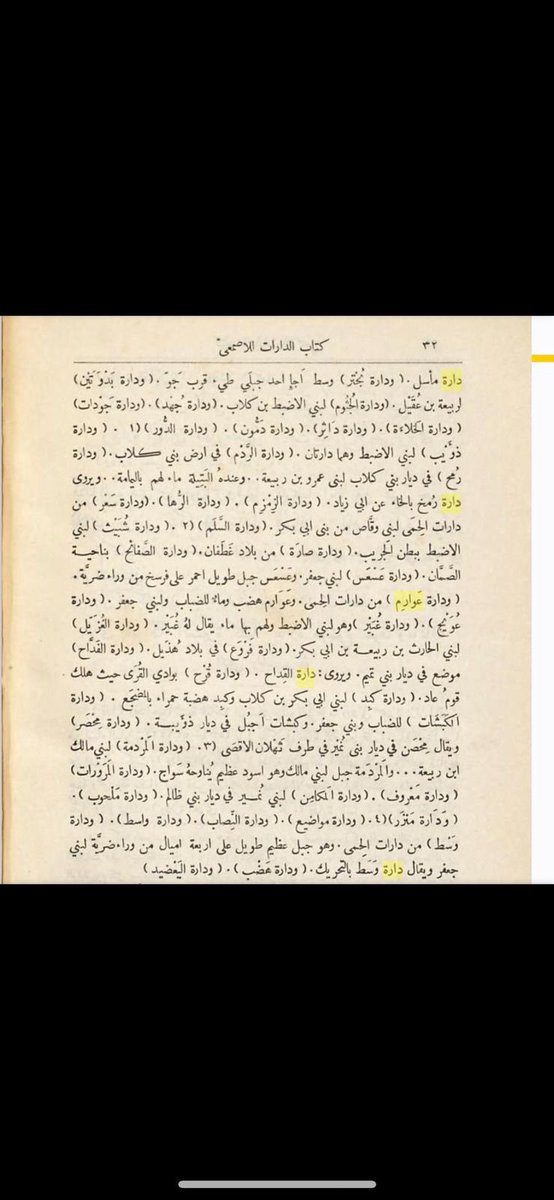 ٣٢ كتاب الدارات للاصمعيّ
دارة مأسل. ( ودارة بُحتر) وسط أَجإ احد جبلَي طيء قرب جَوّ. ( ودارة بَدْوَتَيْن)
لربيعة بن عُقَيْل. (ودارة الجُثُوم) لبني الاضبط بن كلاب. (ودارة جُهَد). (ودارة جَوْدات)
( ودارة الخَلاءَة). ( ودارة دَاثِر). ( ودارة دَمُّون). ( ودارة الدُّور) (١. ( ودارة
ذُؤَيْب) لبني الاضبط وهما دارتان. ( ودارة الرَّدْم) في ارض بني كلاب. ( ودارة
رُمح) في ديار بني كلاب لبنى عمرو بن ربيعة.. وعندهُ البَتِيلة ماء لهم باليامة.. ويروى
دارة رُمخ بالخاء عن ابي زياد. ( ودارة الرِّمْرِم). ( ودارة الرُّها). (ودارة سَعْر) من
دارات الحِمَى لبنى وقَّاص من بنى ابي بكر. (ودارة السَّلَم) (٢. ( ودارة شُبَيْث) لبني
الاضبط ببطن الجريب. ( ودارة صَارَة) من بلاد غَطَفان. ( ودارة الصَّفائح) بناحية
الصَّمَّان. ( ودارة عَسْعَس) لبني جعفر. وعَسْعَس جبل طويل احمر على فرسخ من وراء ضريَّة.
( ودارة عَوارِم ) من دارات الحمى. وعَوَارم هضب وماء للضباب ولبني جعفر. ( ودارة
عُوَيْج). ( ودارة غُبَيْر) وهو لبني الاضبط ولهم بها ماء يقال لهُ غُبَيْر. ( ودارة الغُزَيِّل)
لبني الحارث بن ربيعة بن ابي بكر. ( ودارة فَرْوَع) في بلاد هُذَيل. ( ودارة القَدَّاح)
موضع في ديار بني تميم. ويروى: دارة القِداح. ( ودارة قُرْح ) بوادي القُرَى حيث هلك
قومُ عاد. ( ودارة كَبِد ) لبني ابي بكر بن كلاب وكَبِد هضبة حمراء بالمَضْجَع. ( ودارة
الكَبَشات ) للضباب وبني جعفر. وكبشات اجبُل في ديار ذؤيبة. ( ودارة مِحْصَر)
ويقال مِحْصَن في ديار بنى نُمَيْر في طرف ثَهْلان الاقصى (٣. ( ودارة المَرْدمة) لبنى مالك
ابن ربيعة... والمَرْدَمة جبل لبني مالك وهو اسود عظيم يُناوحهُ سواج. ( ودارة المَرَوْرات)
( ودارة مَعْروف). ( ودارة المكامن ) لبني نُمَير في ديار بني ظالم. ( ودارة مَلْحوب).
( ودَارة مَنْزَر) (٤. ( ودارة مواضيع). ( ودارة النِّصاب). ( ودارة واسط). ( ودارة
وَسْط) من دارات الحِمى. وهو جبل عظيم طويل على اربعة اميال من وراء ضريَّة لبني
جعفر ويقال دارة وَسَط بالتحريك. ( ودارة هَضْب). ( ودارة اليَعْضيد)